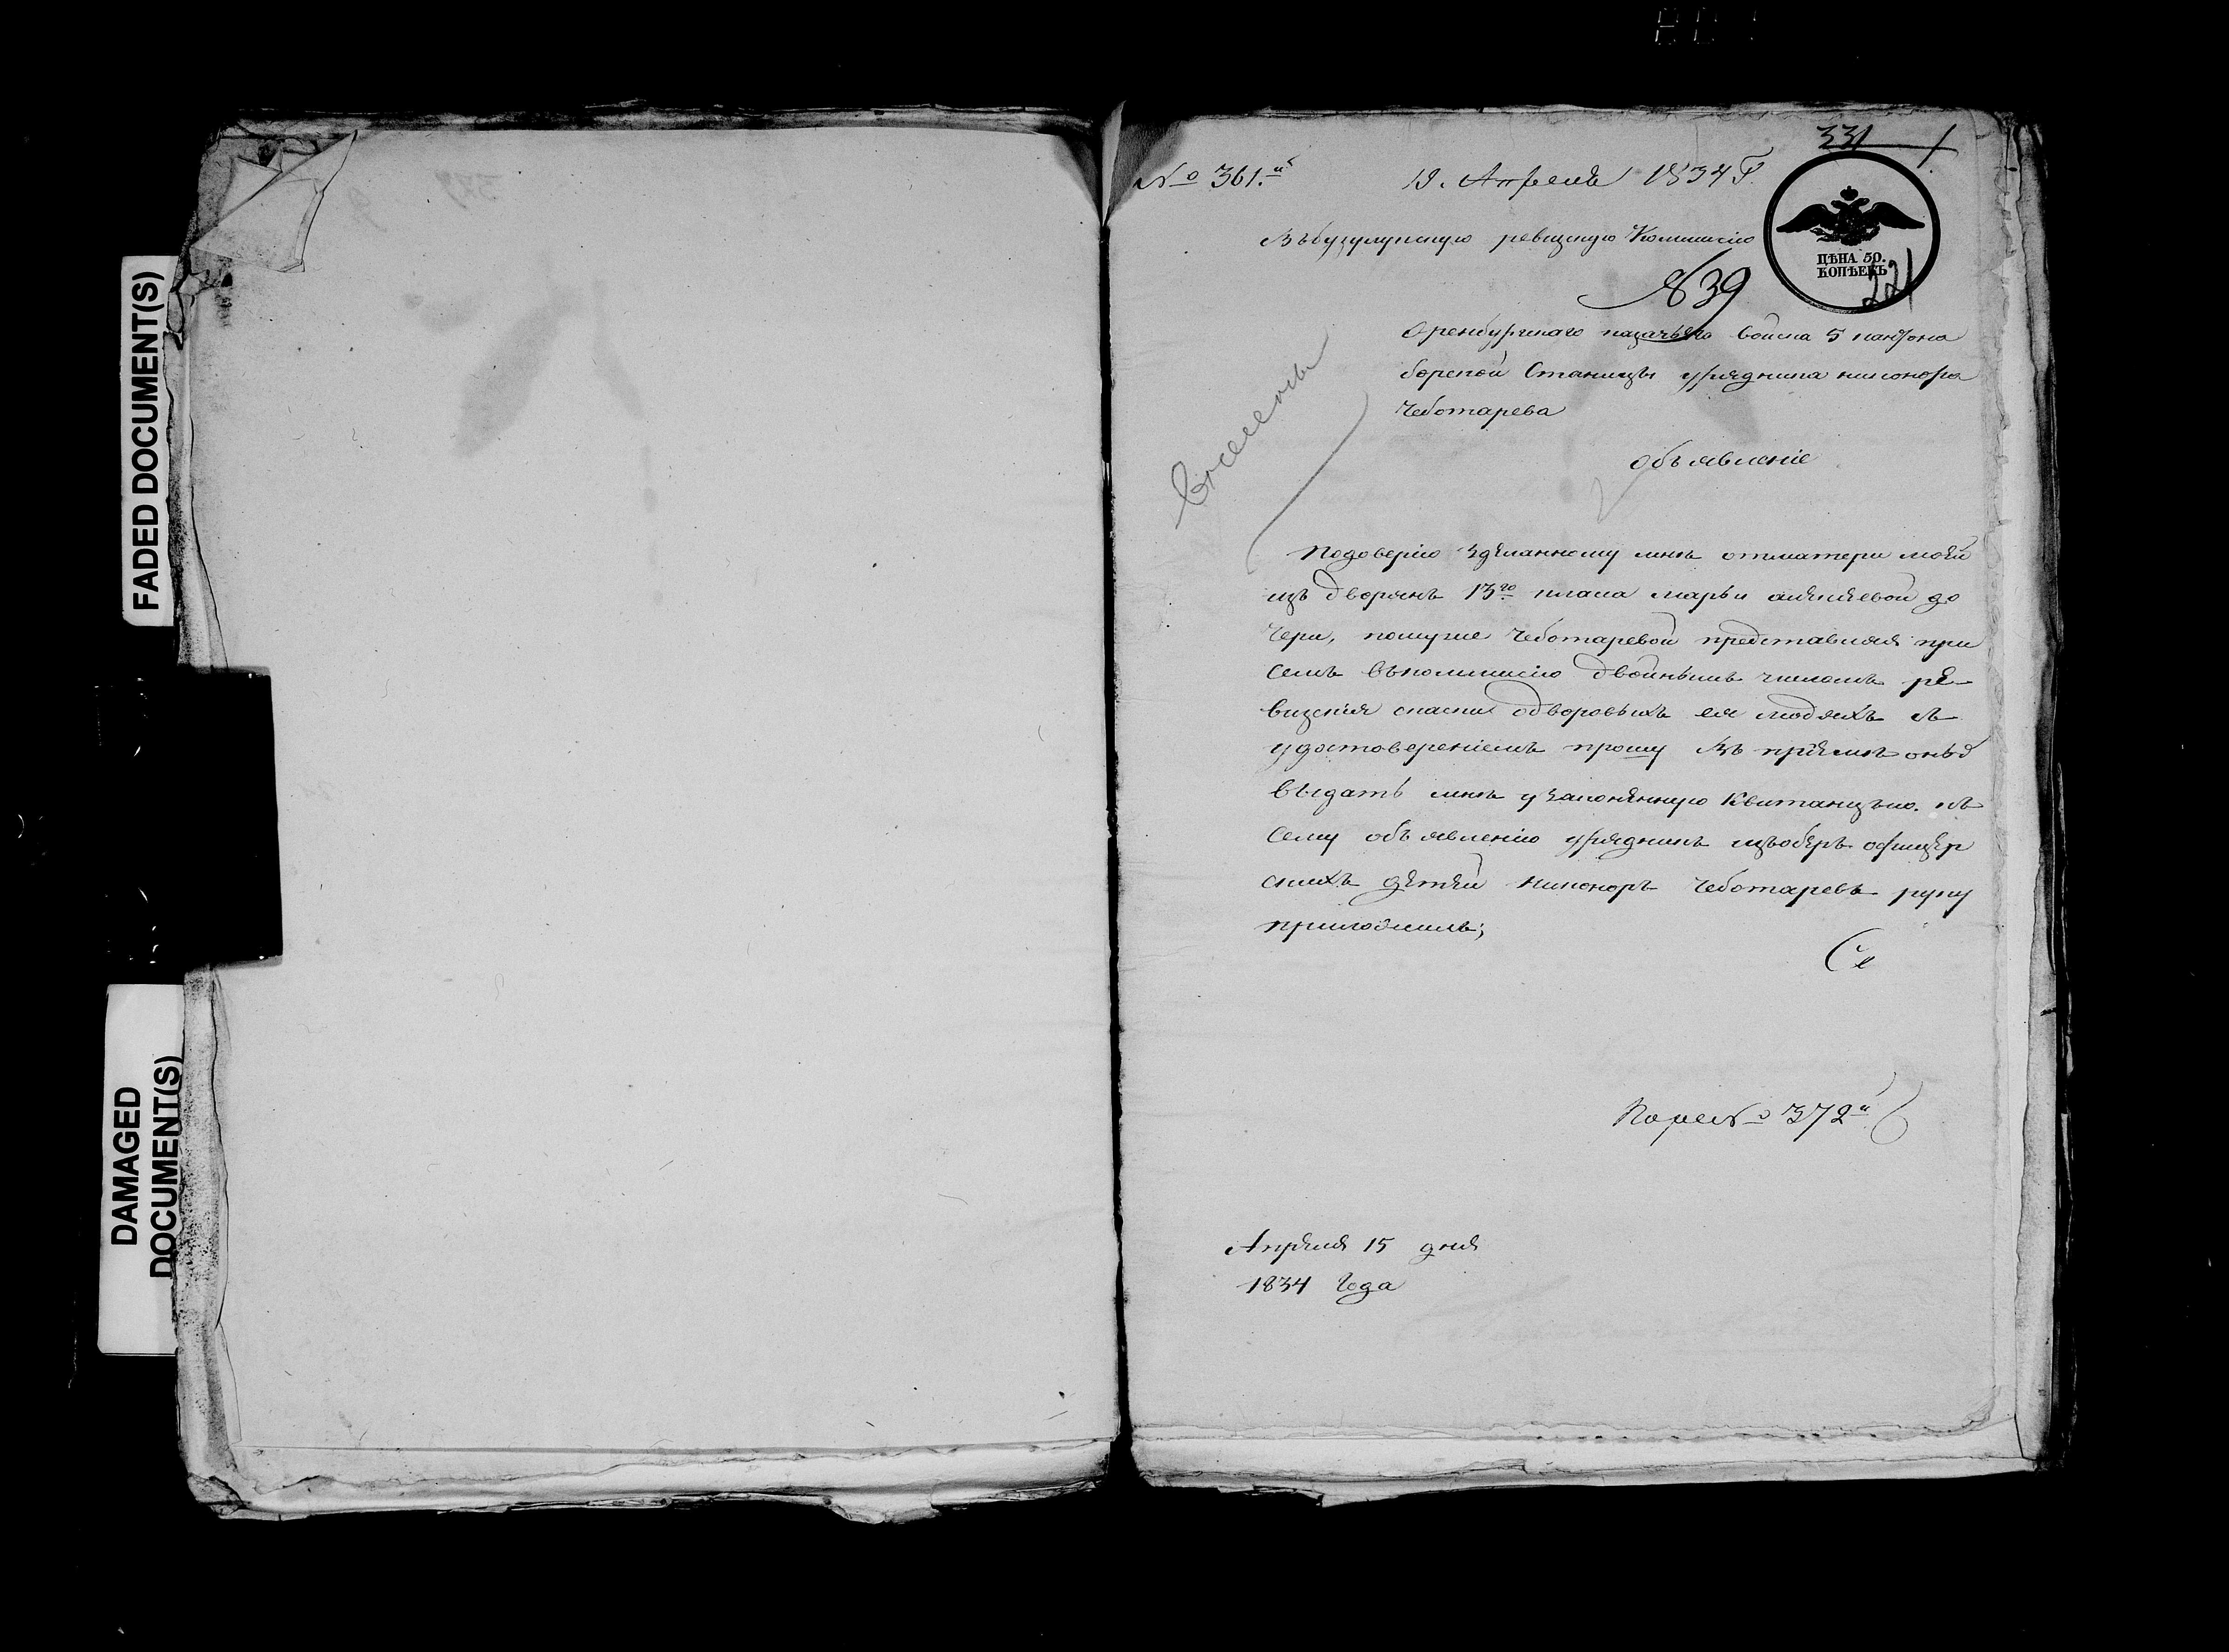 FADED DOCUMENT(S)
DAMAGED
DOCUMENT(S)
331
№ 361.й
19. Апреля 1834 Г.
Въ бузулунскую ревизскую Коммисію
ЦѢНА 50.
КОПѢЕКЪ
221
№ 39
Оренбургскаго казачьяго войска 5 кантона
борской Станицы урядника никонора
Чеботарева
объявленіе
По доверію зделанному мне отматери моей
изъ дворянъ 13го класа марьи дочери, по муже Чеботаревой представляя при
семъ въ коммисію двойнымъ числомъ ре-
визскія скаски одворовыхъ ея людяхъ съ
удостовереніемъ прошу Въ приеме оныхъ
выдать мне узаконенную Квитанцыю. къ
сему объявленію урядникъ изъ оберъ офицер
скихъ детей никоноръ Чеботаревъ руку
приложилъ;
По рев № 372й
Апреля 15 дня
1834 Года